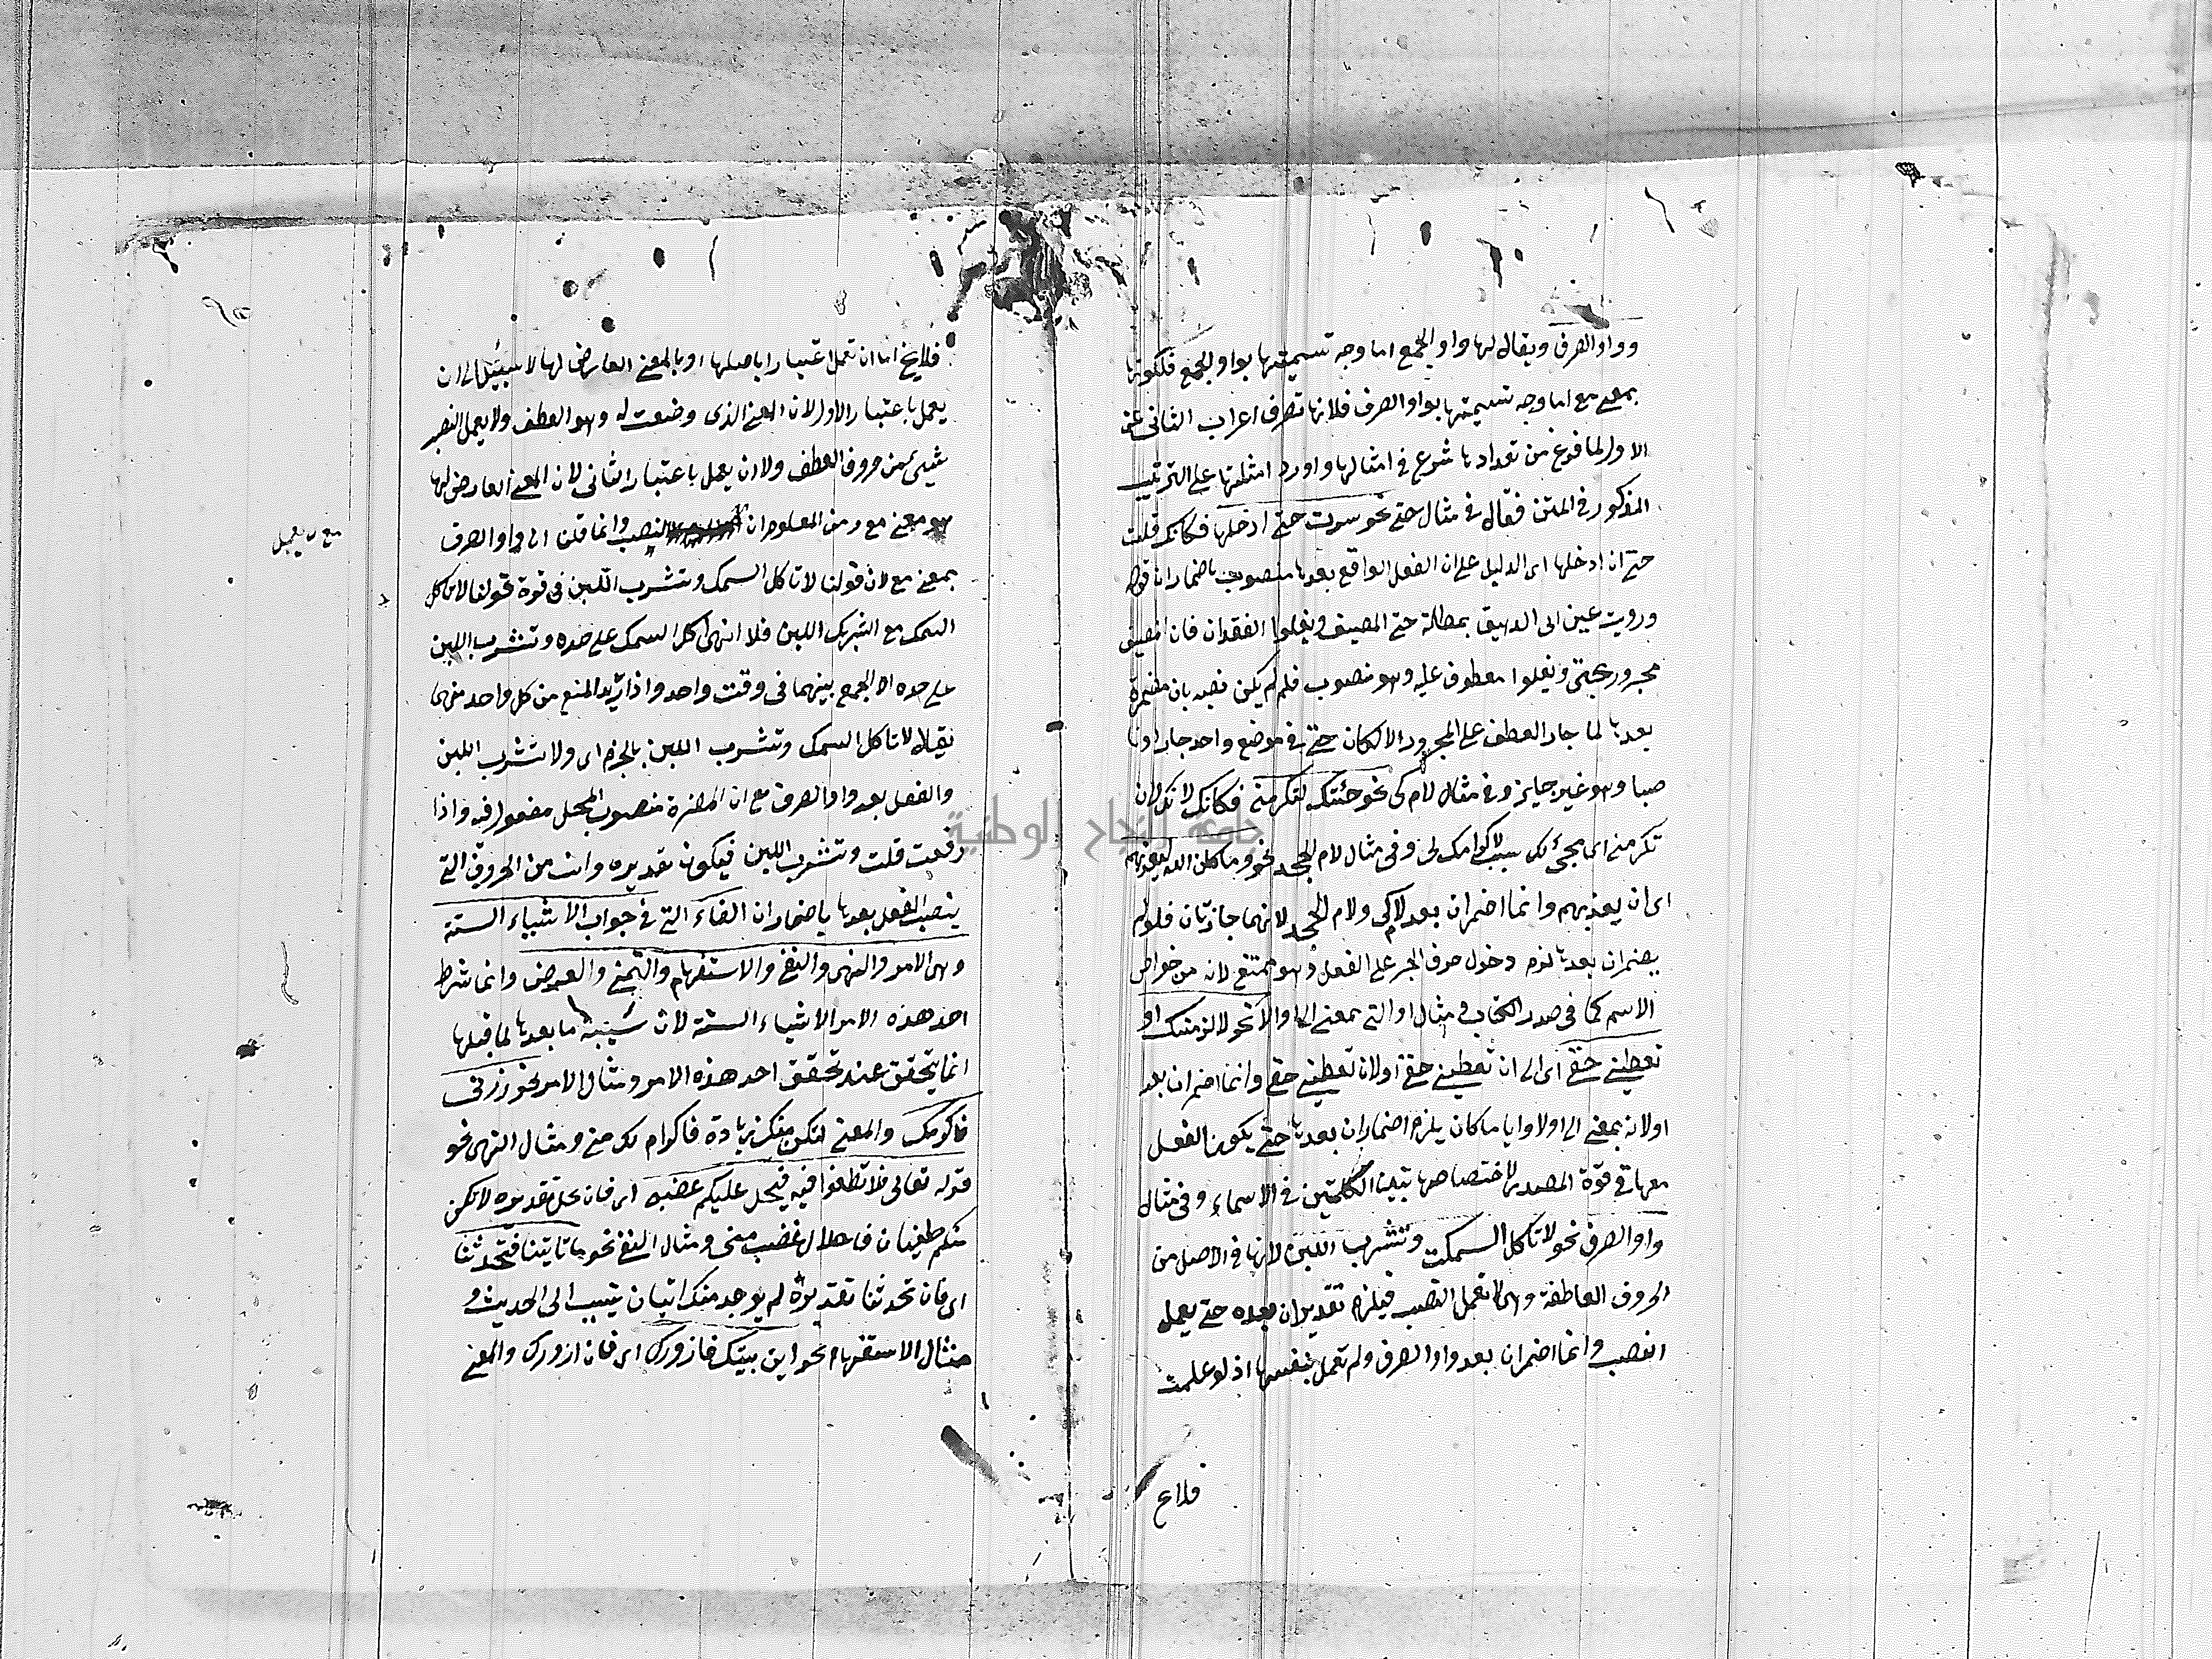 وواو الصرف ويقال لها واو الجمع اما وجه تسميتها بواو الجمع فلكونها
بمعنى مع اما وجه تسميتها بواو الصرف فلانها تصرف اعراب الثانى عن
الاول لما فرغ من تعدادها شرع فى امثالها واورد امثلتها على الترتيب
المذكور فى المتن فقال فى مثال حتى نحو سرت حتى ادخلها فكانك قلت
حتى ان ادخلها اى الدليل على ان الفعل الواقع بعدها منصوب باضمار ان قوله
ورويت عين الى الدهيق بمطالة حتى المصيف ويغلوا الفقدان فان المصيف
مجرور بحتى ويغلوا معطوف عليه وهو منصوب فلم لم يكن نصبه بان مضمرة
بعدها لما جاز العطف على المجرور والا لكان حتى فى موضع واحد جارا ونا
صبا وهو غير جايز وفى مثال لام كى نحو جئتك لتكرمنى فكانك لان
تكرمنى اى مجئ لك بسبب لاكرامك لى وفى مثال لام الجحد نحو وما كان الله ليعذبهم
اى ان يعذبهم وانما اضمر ان بعد لام كى ولام الجحد لانهما جارتان فلو لم
يضمر ان بعدها لزم دخول حرف الجر على الفعل وهو ممتنع لانه من خواص
الاسم كما فى صدر الكتاب وفى مثال او التى بمعنى الى او الا نحو لالزمنك او
تعطينى حقى اى الى ان تعطينى حقى او لان تعطينى حقى وانما اضمر ان بعد
او لانه بمعنى الى او لا وايا ما كان يلزم اضمار ان بعدها حتى يكون الفعل
معها فى قوة المصدر لاختصاصها بتينك الكلمتين فى الاسماء وفى مثال
واو الصرف نحو لا تاكل السمك وتشرب اللبن لانها فى الاصل من
الحروف العاطفة وهى لا تعمل النصب فيلزم تقدير ان بعده حتى يعمل
النصب وانما اضمر ان بعد واو الصرف ولم تعمل بنفسها اذ لو عملت
فلا يخ
فلا يخ اما ان تعمل اعتبارا باصلها او بالمعنى العارض لها لا سبيل الى ان
يعمل باعتبار الاول لان المعنى الذى وضعت له وهو العطف ولا يعمل النصب
شيئ من حروف العطف ولا ان يعمل باعتبار الثانى لان المعنى العارض لها
هو معنى مع ومن المعلوم ان النصب وانما قلنا ان واو الصرف
مع لا يعمل
بمعنى مع لان قولنا لا تاكل السمك وتشرب اللبن فى قوة قولنا لا تاكل
السمك مع الشربك اللبن فلا انهى اكل السمك على حده وتشرب اللبن
على حده الا الجمع بينهما فى وقت واحد واذا اريد المنع من كل واحد منهما
يقال لا تاكل السمك وتشرب اللبن بالجزم اى ولا تشرب اللبن
والفعل بعد واو الصرف مع ان المضمرة منصوب المحل مفعول فيه واذا
رفعت قلت وتشرب اللبن فيكون تقديره وانت من الحروف التى
ينصب الفعل بعدها باضمار ان الفاء التى فى جواب الاشياء الستة
وهى الامر والنهى والنفى والاستفهام والتمنى والعرض وانما شرط
احد هذه الامر الاشياء الستة لان سببية ما بعدها لما قبلها
انما يتحقق عند تحقق احد هذه الامر ومثال الامر نحو زرنى
فاكرمك والمعنى لتكن منك زيادة فاكرام لك منى ومثال النهى نحو
قوله تعالى فلا تطغوا فيه فيحل عليكم غضبى اى فان يحل تقديره لا تكن
منكم طغيان فاحلال غضب منى ومثال النفى نحو ما تاتينا فتحدثنا
اى فان تحدثنا تقديره لم يوجد منك اتيان يتسبب الى الحديث و
مثال الاستفهام نحو اين بيتك فازورك اى فان ازورك والمعنى
جامعة النجاح الوطنية